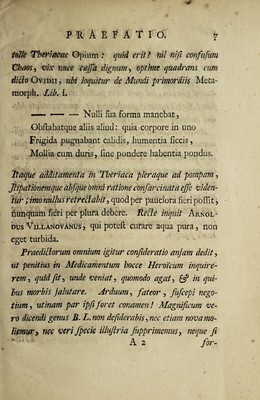 PRAEFATIO. 7
tolle Theriacae Opium : quid erit? nil nisi confusum
Chaos, vix nuce cassa dignum, optime quadrans cum
dicto OVIDII, ubi loquitur de Mundi primordiis Meta-
morph. Lib. I.
— — — Nulli sua forma manebat,
Obstabatque aliis aliud: quia corpore in uno
Frigida pugnabant calidis, humentia siccis,
Mollia cum duris, sine pondere habentia pondus.
Itaque additamenta in Theriaca pleraque ad pompam,
stipationemque absque omni ratione consarcinata esse viden-
tur; imo nullus retrectabit, quod per pauciora fieri possit,
nunquam fieri per plura debere. Recte inquit ARNOL-
DUS VILLANOVANUS, qui potest curare aqua pura, non
eget turbida.
Praedictorum omnium igitur consideratio ansam dedit,
ut penitius in Medicamentum hocce Heroïcum inquire-
rem, quid sit, unde veniat, quomodo agat, & in qui-
bus morbis salutare. Arduum, fateor, suscepi nego-
tium, utinam par ipsi foret conamen! Magnificum ve-
ro dicendi genus B. L. non desiderabis, nec etiam nova mo-
limur, nec veri specie illustria supprimemus, neque si
A 2 for-